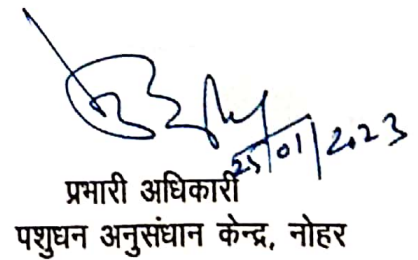 25/01/2023
प्रभारी अधिकारी
पशुधन अनुसंधान केन्द्र, नोहर